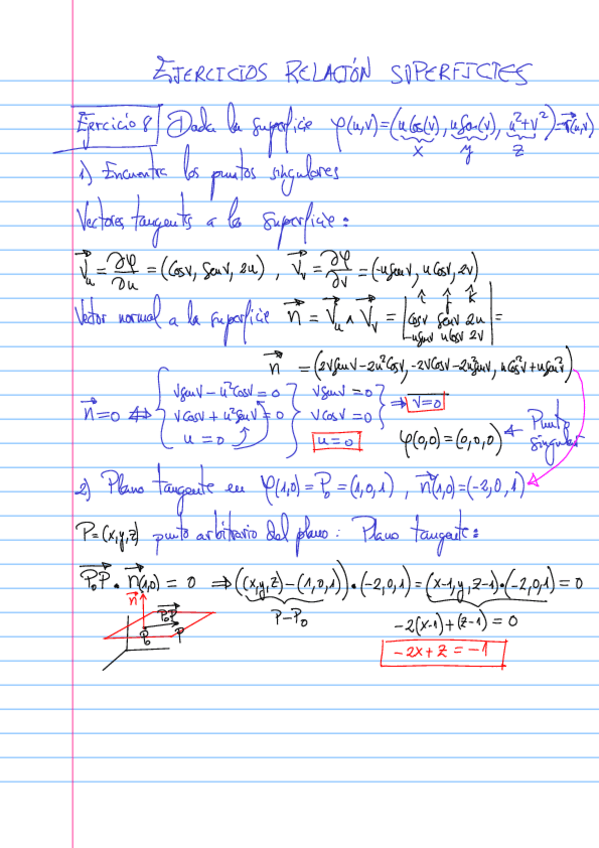 EJERCICIOS RELACIÓN SUPERFICIES
Ejercicio 8 Dada la superficie φ(u,v)=(u Cos(v), u Sen(v), u²+v²)=r⃗(u,v)
x y z
1) Encuentra los puntos singulares
Vectores tangents a la superficie:
V⃗u = ∂φ/∂u = (Cosv, Senv, 2u) , V⃗v = ∂φ/∂v = (-uSenv, uCosv, 2v)
Vector normal a la superficie n⃗ = V⃗u ∧ V⃗v = | i j k ; Cosv Senv 2u ; -uSenv uCosv 2v | =
n⃗ = (2vSenv-2u²Cosv, -2vCosv-2u²Senv, uCos²v+uSen²v)
n⃗=0 ⇔ { vSenv-u²Cosv=0 ; vCosv+u²Senv=0 ; u=0 } vSenv=0 ; vCosv=0 ; u=0 } ⇒ v=0
φ(0,0)=(0,0,0) ← Punto singular
2) Plano tangente en φ(1,0)=P₀=(1,0,1) , n⃗(1,0)=(-2,0,1)
P=(x,y,z) punto arbitrario del plano: Plano tangente:
P₀P⃗ · n⃗(1,0) = 0 ⇒ ((x,y,z)-(1,0,1))·(-2,0,1)=(x-1,y,z-1)·(-2,0,1)=0
P-P₀
-2(x-1)+(z-1)=0
-2x+z=-1
n⃗ P₀P⃗
P₀ P